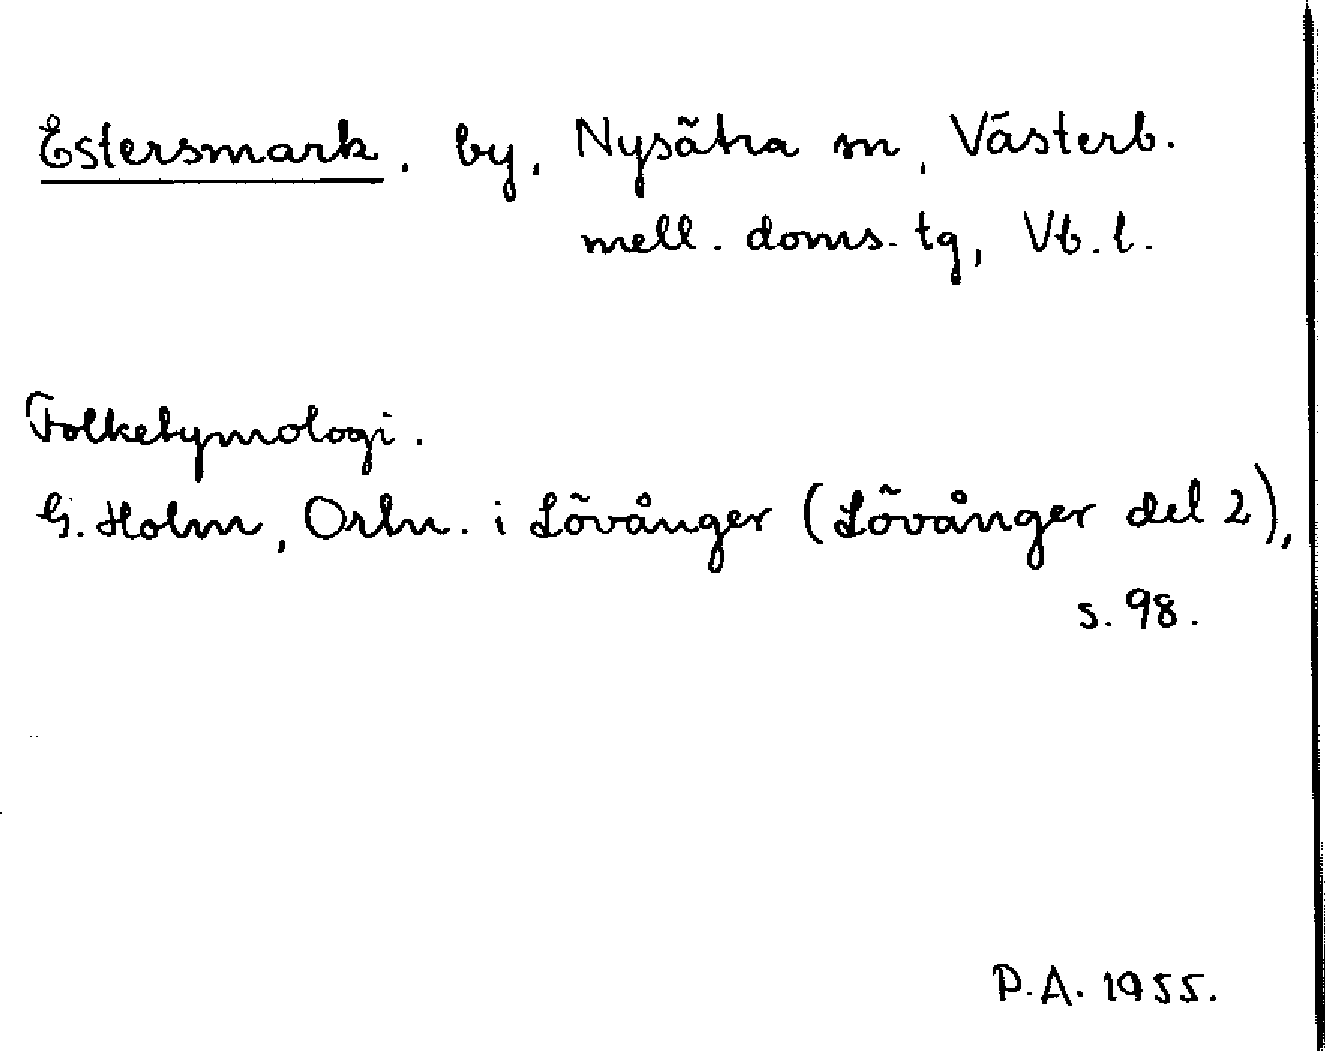 Estersmark, by, Nysätra sn, Västerb.
mell. doms. tg, Vb. l.
Folketymologi.
G. Holm, Ortn. i Lövånger (Lövånger del 2),
s. 98.
P.A. 1955.